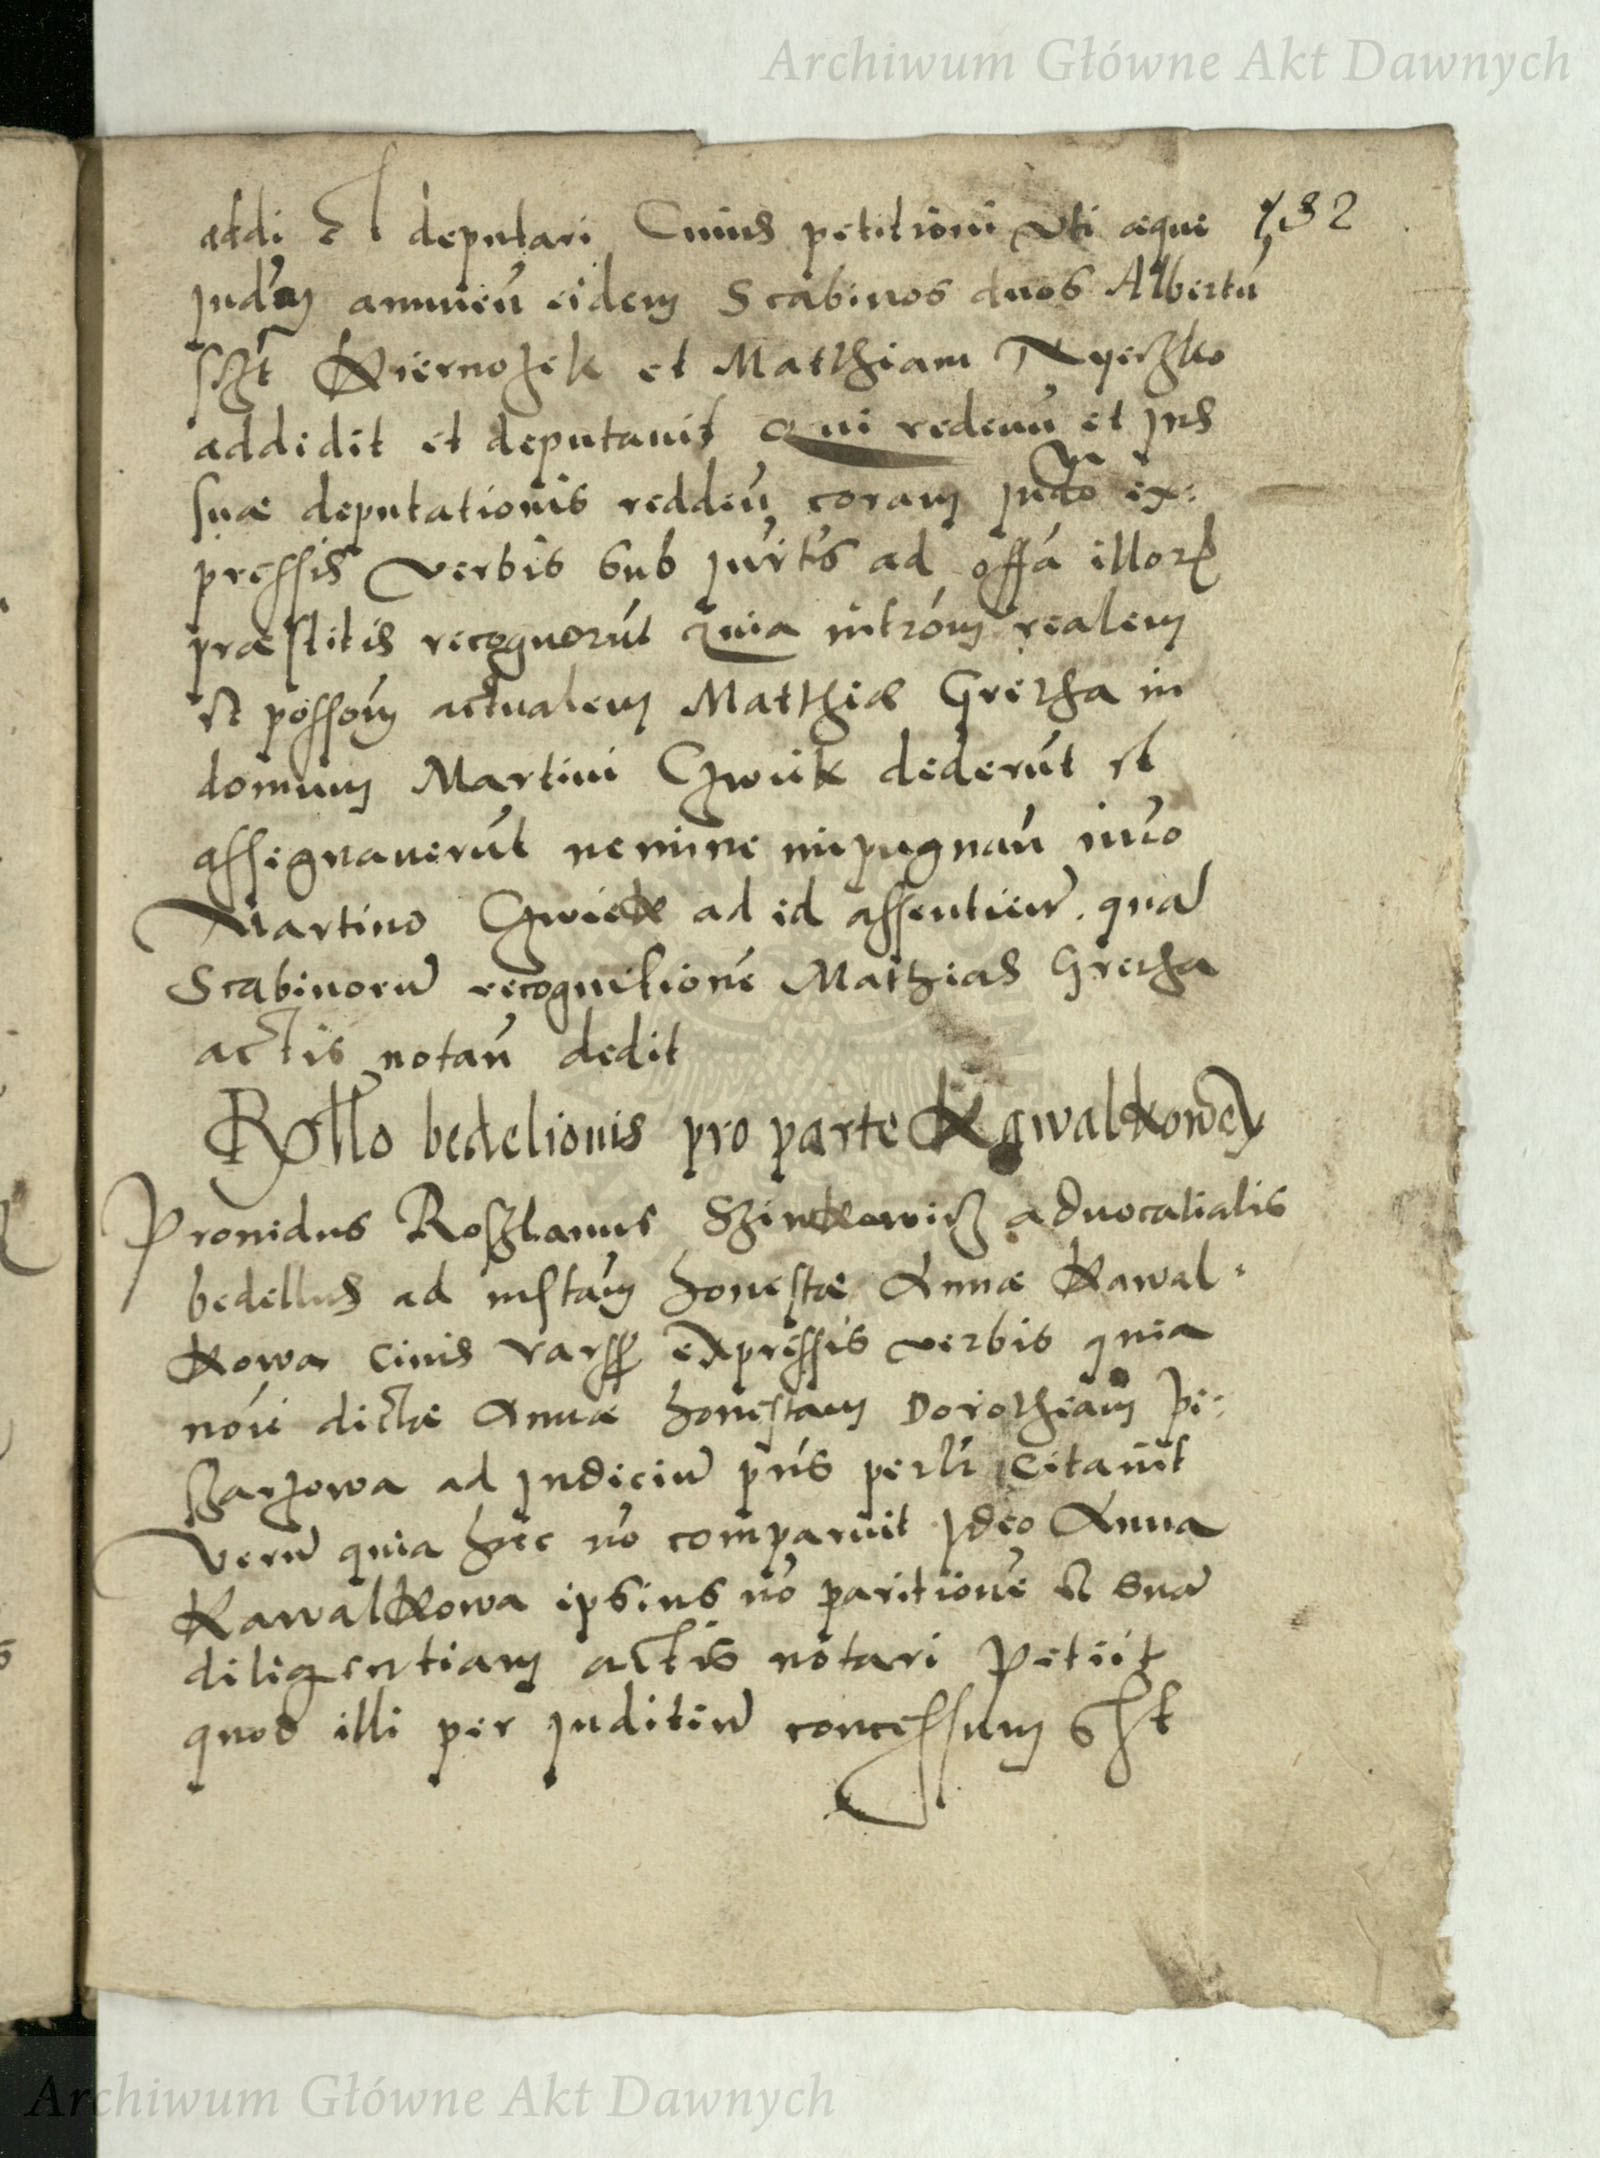 Archiwum Główne Akt Dawnych
addi et deputari Cuius petitioni uti æque 132
Judm annuen̄ eidem Scabinos duos Albertū
Kiernozek et Matthiam
addidit et deputauit Qui redeun̄ et Jus
suæ deputationis redden̄ coram Judo ex:
pressis verbis sub Jurtis ad offa illorꝝ
præstitis recognorūt quia introm̄ realem
et possom̄ actualem Matthiæ Grezka in
domum Martini Czwiek dederūt et
assegnauerūt nemine inpugnan̄ imo
Martino Czwiek ad id assentien̄ quā
Scabinorū recognitionē Mathias Grezka
actis notan̄ dedit
Rello bedelionis pro parte Kawalkowey
Prouidus Roszlanus Szinkowicz aduocatialis
bedellus ad instam̄ honestæ Annæ Kawal-
kowa ciuis Vars expressis verbis quia
noīe dictæ Annæ honestam Dorothiam Pi-
szarzowa ad Judiciū pn̄s citauit
Verū quia hæc nō comparuit Jdeo Anna
Kawalkowa ipsius nō paritionē et suā
diligentiam actis notari petiit
quod illi per Juditiū concessum est
Archiwum Główne Akt Dawnych